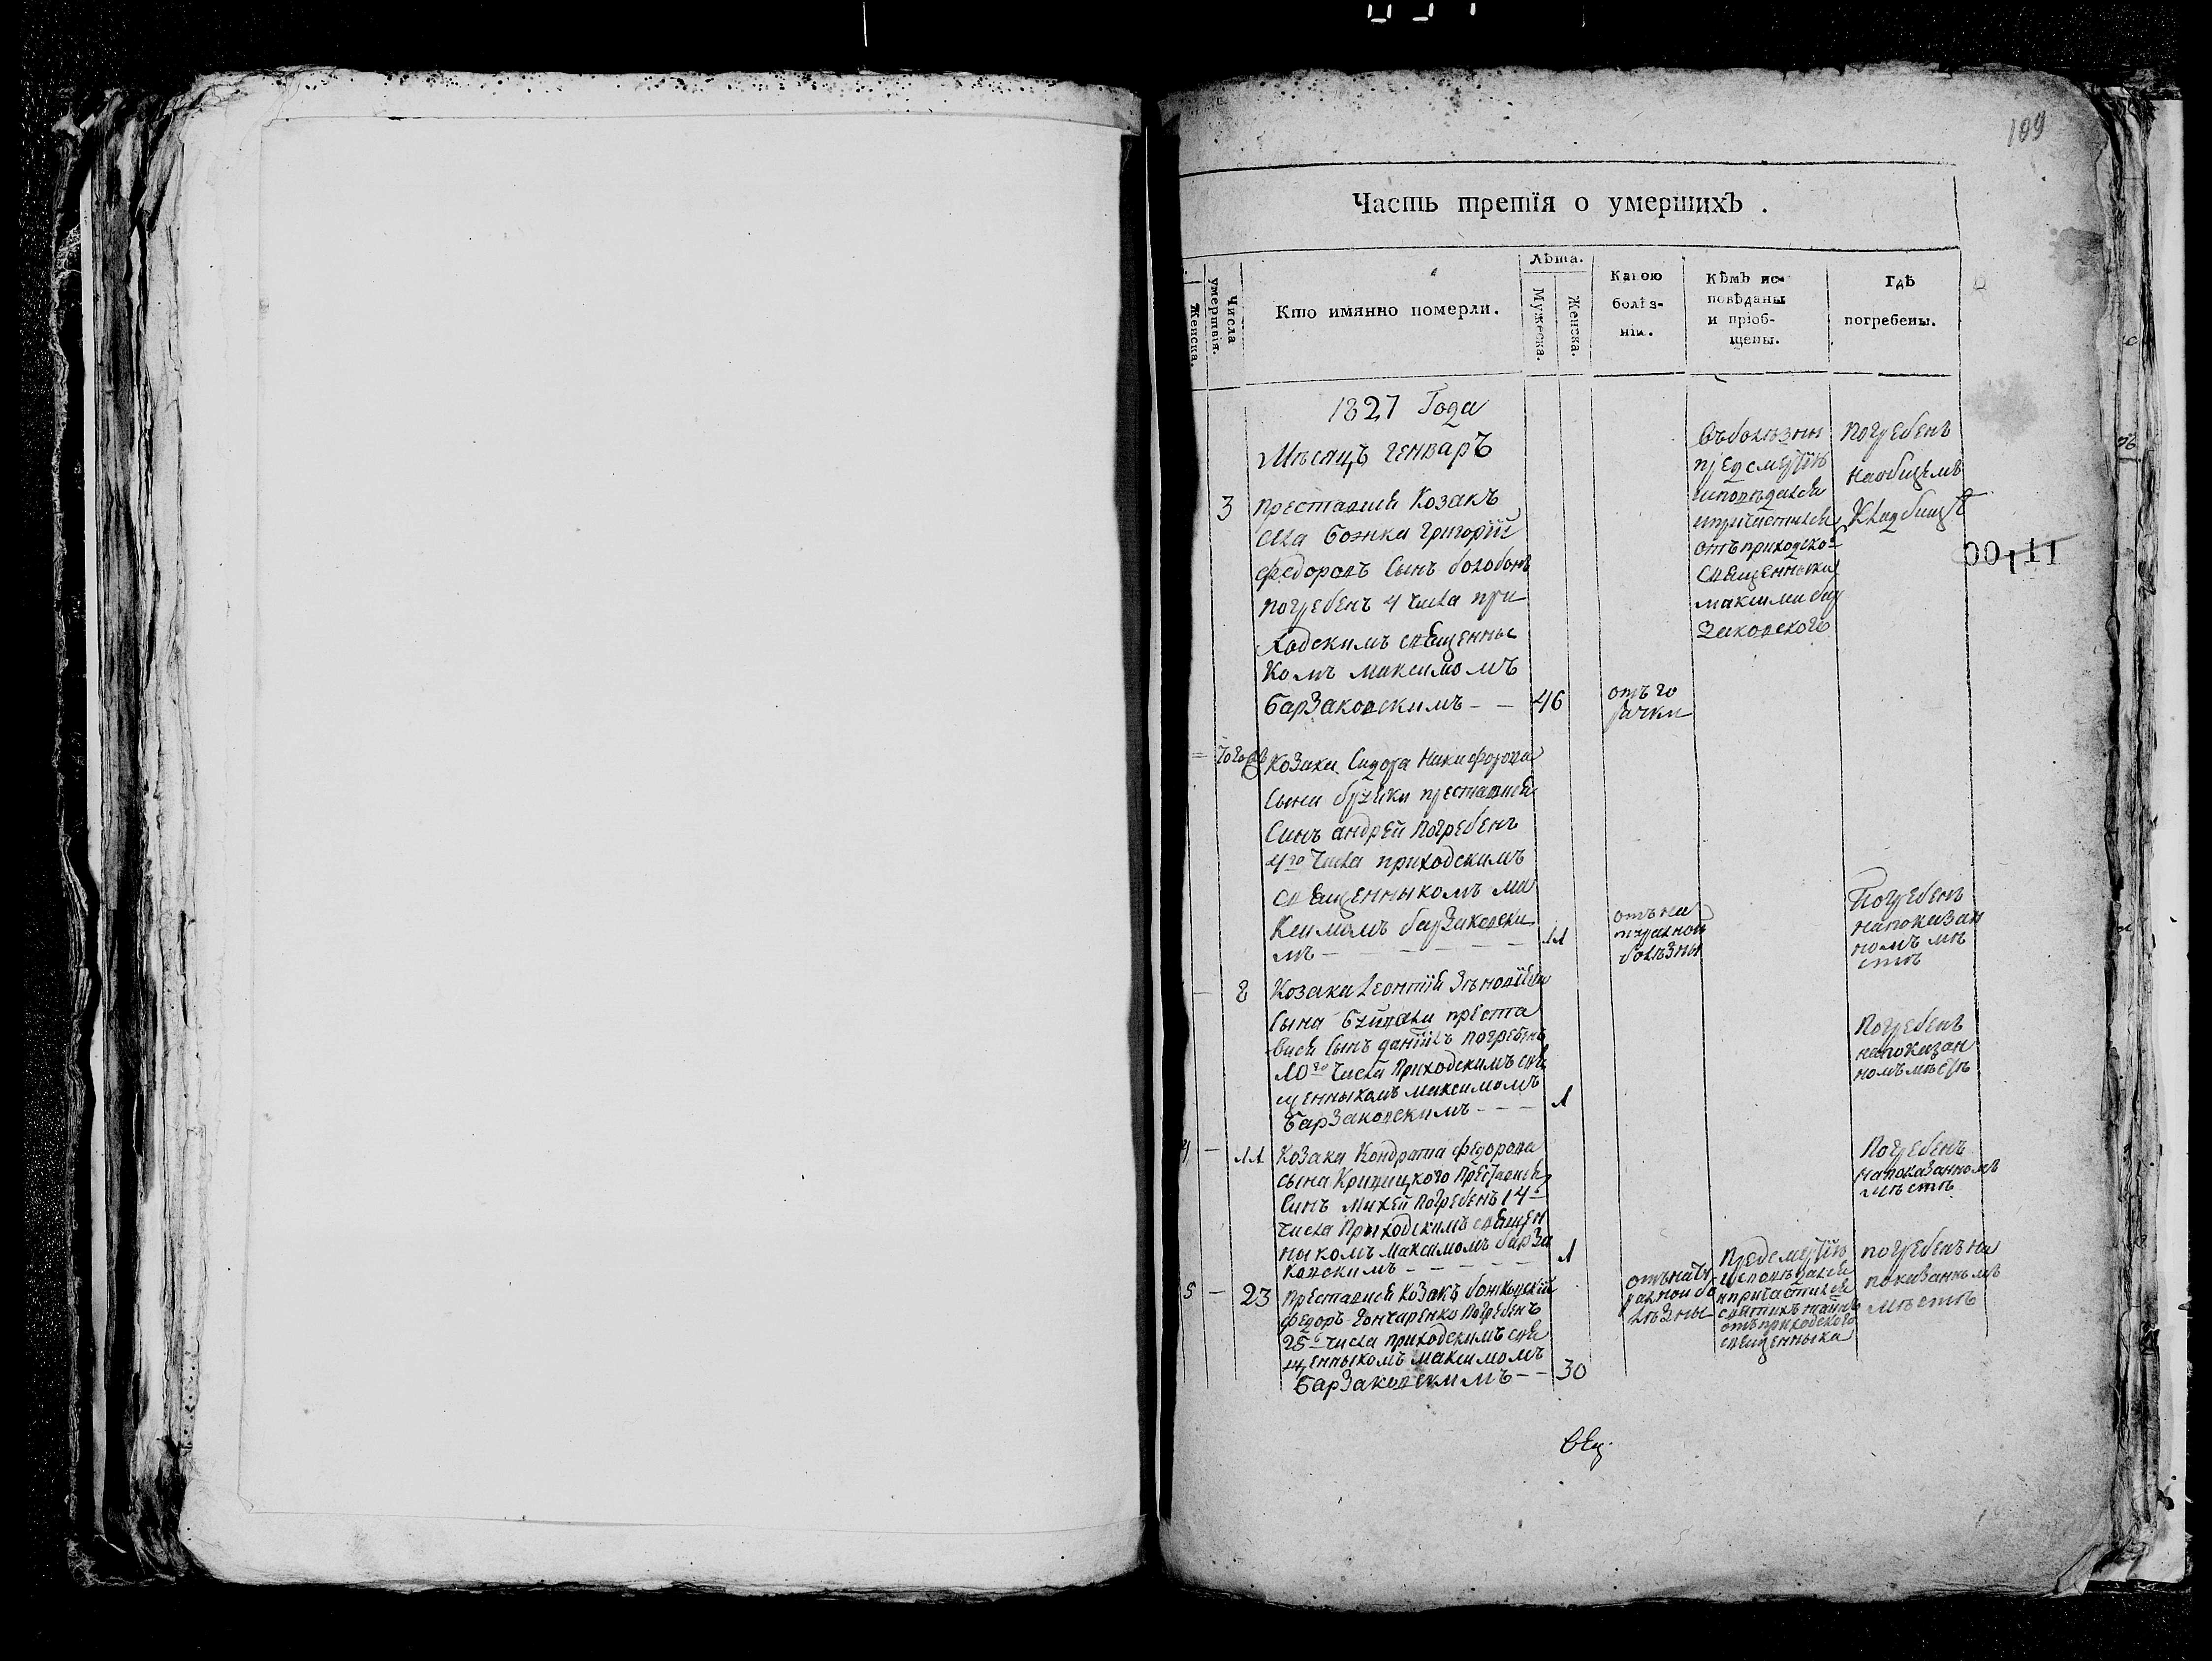 109
Часть третїя о умершихЪ.
Женска.
Числа умертвія.
Кто имянно померли.
Лѣта.
Мужеска.
Женска.
Какою
болѣз-
нїи.
КѣмЪ ис-
повѣданы
и прїоб-
щены.
Гдѣ
погребены.
1827 Года
Мѣсяцъ генварЪ
3
Преставися Козакъ
села Божка Григорїй
Федоровъ Сынъ
погребенъ 4 числа при
ходскимъ священны
комъ Максимомъ
Барзаковскимъ - -
46
отъ го
рячки
въболѣзни
предсмертію
исповѣдался
ипричастился
отъ приходско
священныка
максима бар
заковского
Погребенъ
наобщемъ
Кладбищѣ
00111
Козака Сидора Никифорова
Сына преставися
Синъ андрей Погребенъ
4го числа приходскимъ
священныкомъ ма
ксимомъ барзаковски
мъ - - - -
11
отъ на
туралной
болѣзны
Погребенъ
напоказан
номъ мѣ
стѣ
8
Козака Леонтїя Зѣновїева
Сына преста
вися Сынъ данїилъ погребенъ
10го числа Приходскимъ свя
щенныкомъ максимомъ
Барзаковскимъ - - -
1
Погребенъ
напоказан
номъ мѣстѣ
4
-
11
Козака Кондрата Федорова
сына Криницкого Преставися
Синъ Михей Погребенъ 14
числа Прыходскимъ священ
ныкомъ Максимомъ барза
ковскимъ - - - -
1
Погребенъ
напоказанномъ
мѣстѣ
5
-
23
Преставися Козакъ божковскїй
Федоръ Гончаренко Погребенъ
25 числа приходскимъ свя
щенныкомъ максимомъ
Барзаковскимъ - -
30
отънату
ралной бо
лѣзны
Предсмертїю
исповѣдался
ипричастился
святихъ тайнъ
отъ приходского
священныка
погребенъ на
показанномъ
мѣстѣ